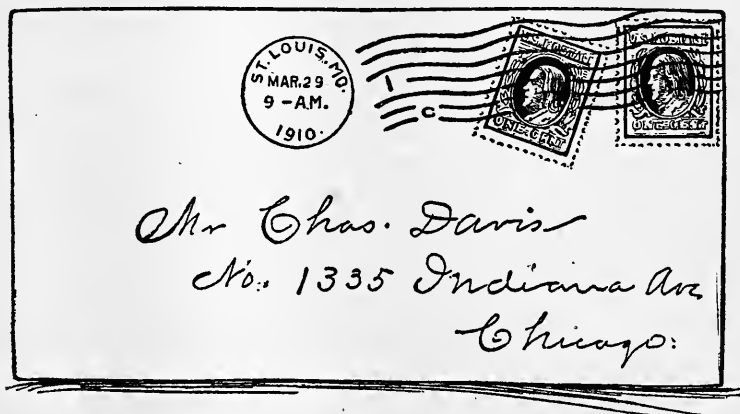 ST. LOUIS, MO.
MAR. 29
9 - A.M.
1910.
1
C
U.S. POSTAGE
ONE CENT
U.S. POSTAGE
ONE CENT
Mr Chas. Davis
No. 1335 Indiana Ave
Chicago: